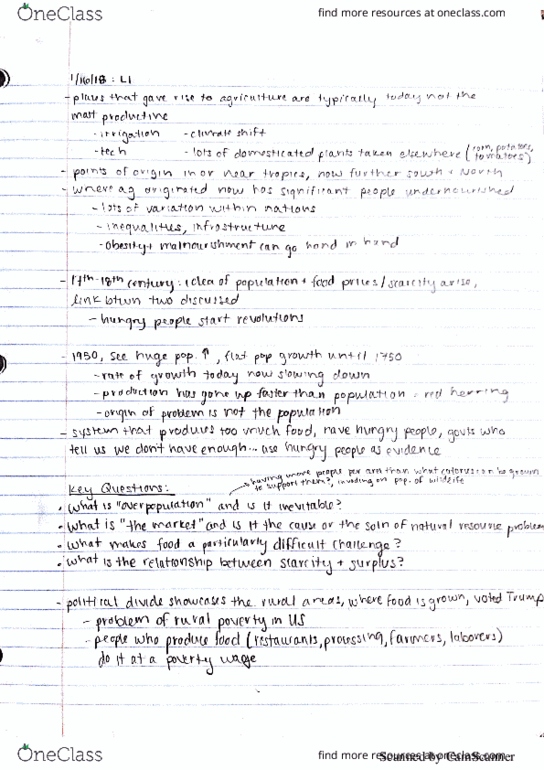 OneClass
find more resources at oneclass.com
1/16/18 : L1
- places that gave rise to agriculture are typically today not the
most productive
- irrigation - climate shift
- tech - lots of domesticated plants taken elsewhere (corn, potatoes,
tomatoes)
- points of origin in or near tropics, now further south + North
- where ag originated now has significant people undernourished
- lots of variation within nations
- inequalities, infrastructure
- obesity + malnourishment can go hand in hand
- 17th-18th century: idea of population + food prices/scarcity arise,
link btwn two discussed
- hungry people start revolutions
- 1950, see huge pop. ↑, flat pop growth until 1750
- rate of growth today now slowing down
- production has gone up faster than population - red herring
- origin of problem is not the population
- system that produces too much food, have hungry people, govts who
tell us we don't have enough... use hungry people as evidence
having more people per area than what calories can be grown
to support them?, invading on pop. of wildlife
Key Questions:
• what is "overpopulation" and is it inevitable?
• what is "the market" and is it the cause or the soln of natural resource problem
• what makes food a particularly difficult challenge?
• what is the relationship between scarcity + surplus?
- political divide showcases the rural areas, where food is grown, voted Trump
- problem of rural poverty in US
- people who produce food (restaurants, processing, farmers, laborers)
do it at a poverty wage
OneClass
find more resources at oneclass.com
Scanned by CamScanner